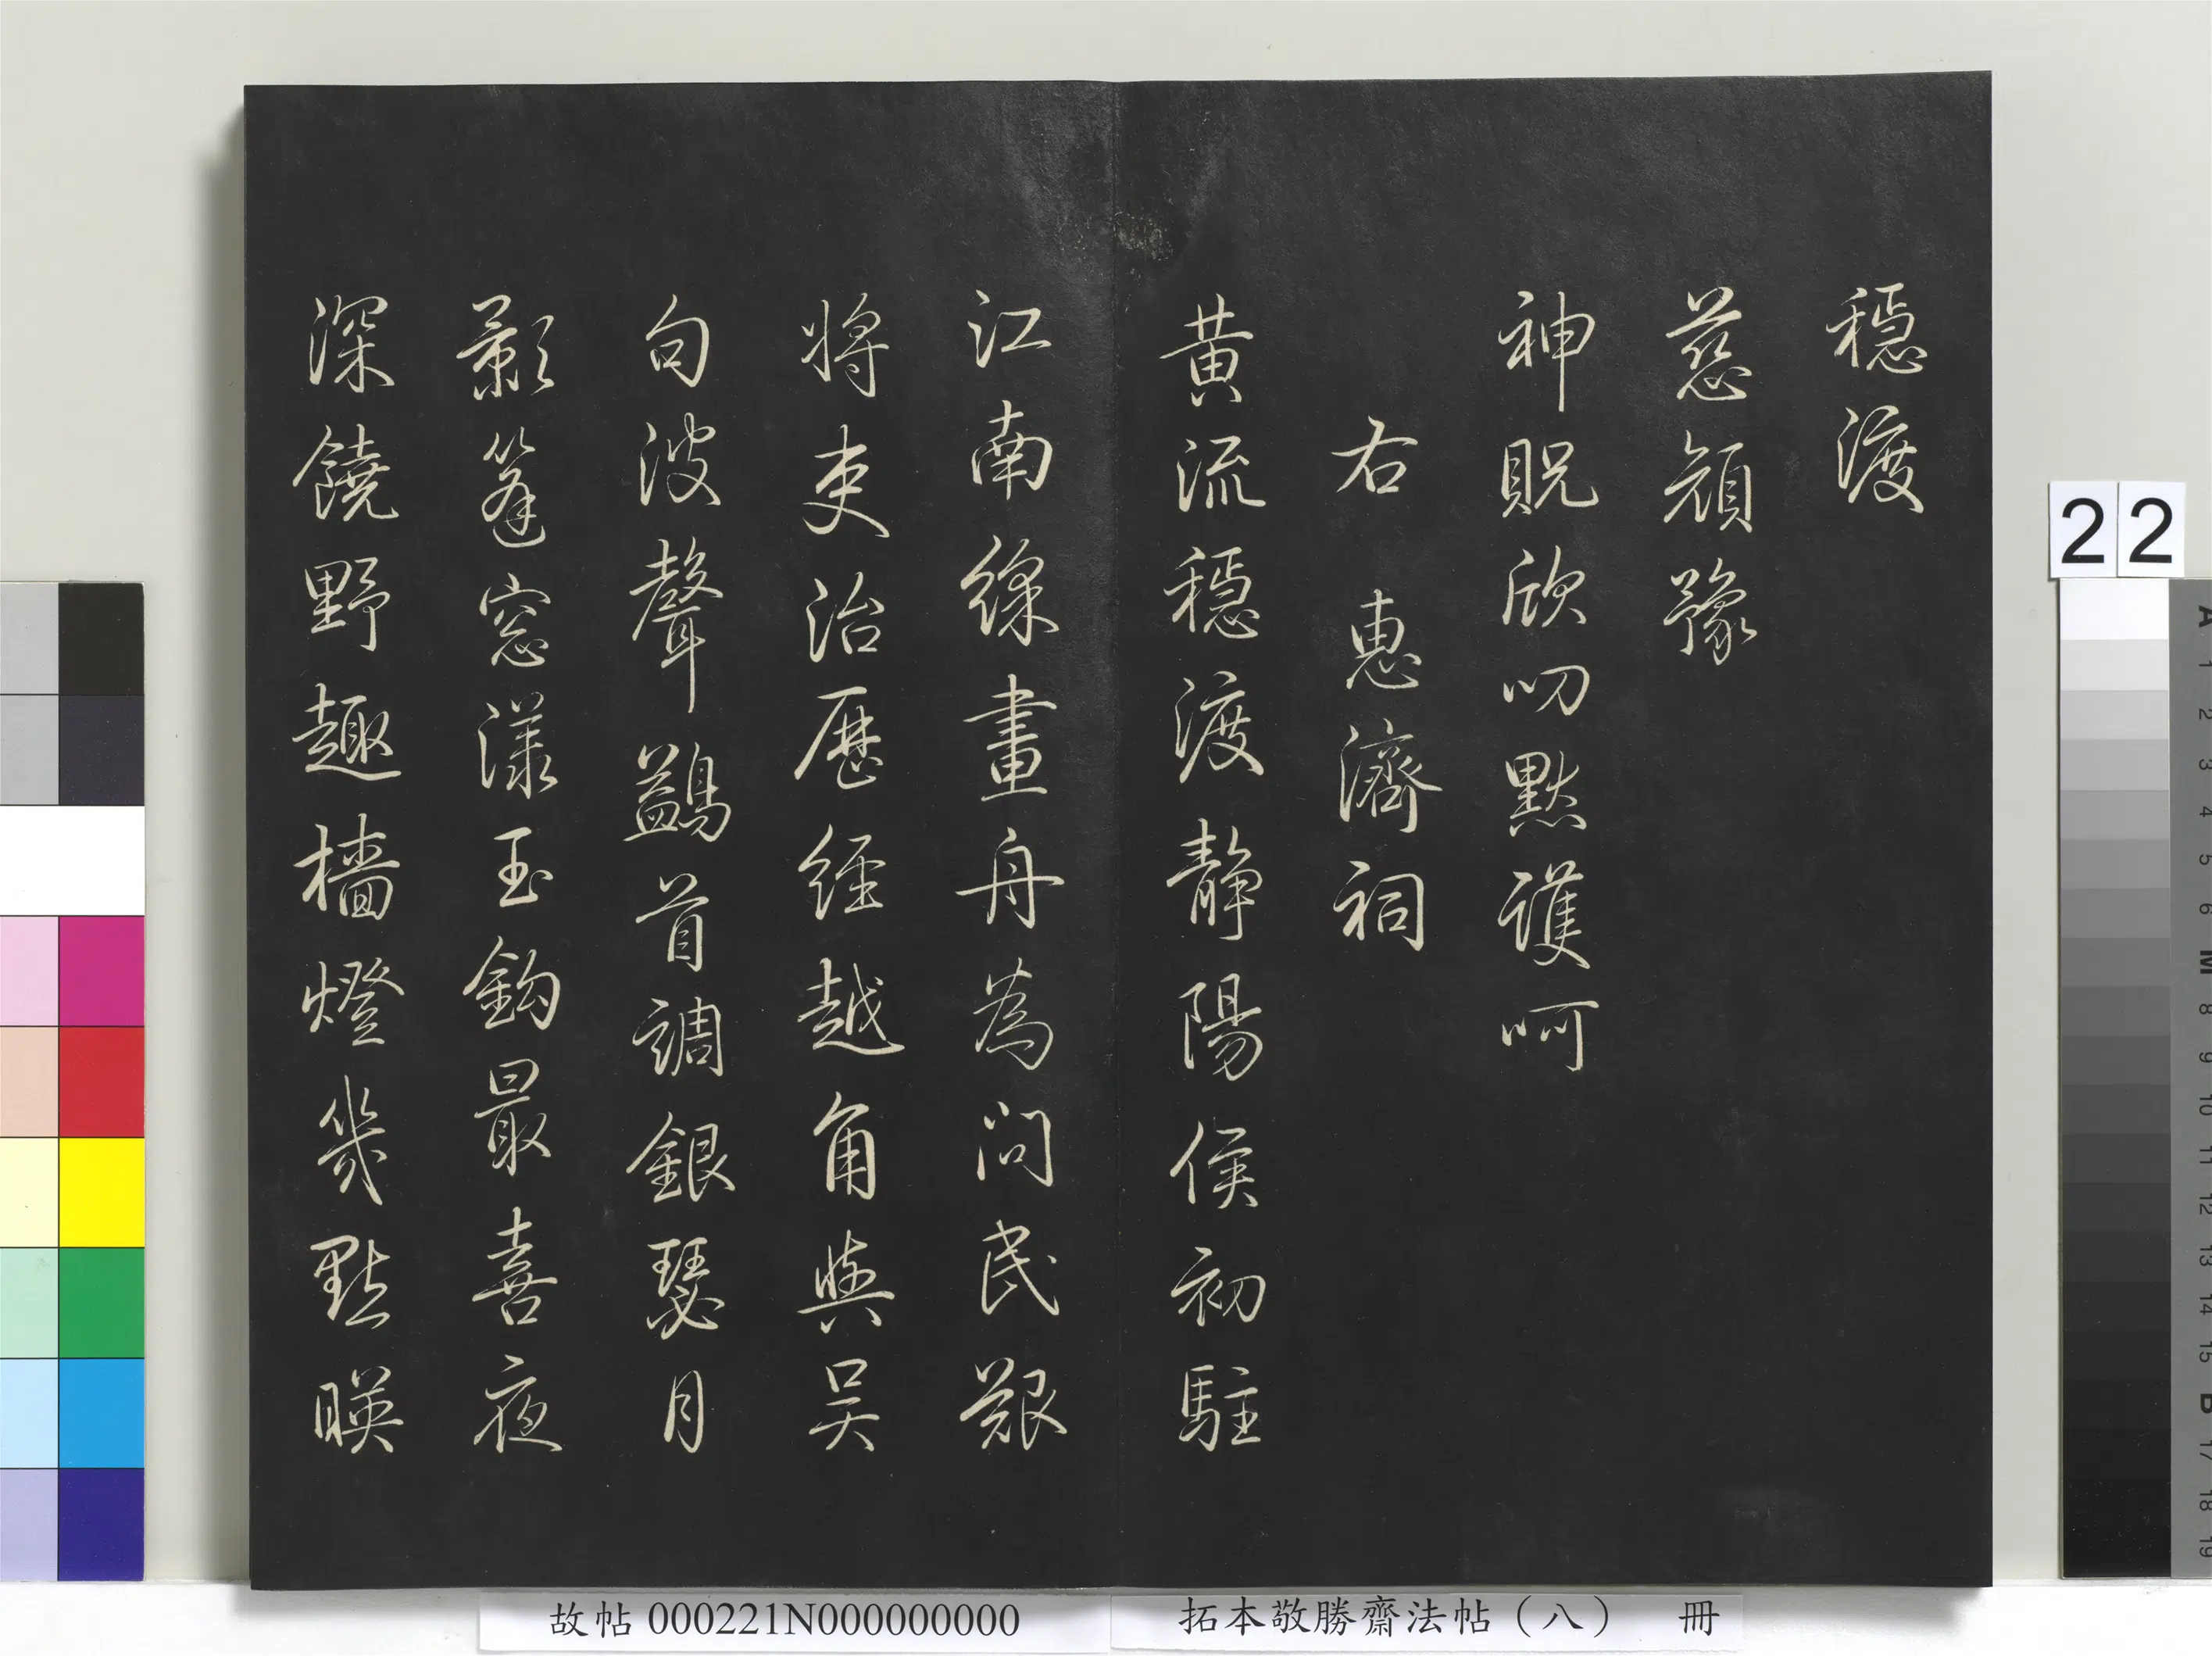 穩渡
慈顏豫
神貺欣叨默護呵
右 惠濟祠
黃流穩渡靜陽侯初駐
江南綵畫舟為問民艱
將吏治歷經越角與吳
句波聲鷁首調銀瑟月
影篷窓漾玉鈎最喜夜
深饒野趣檣燈幾點暎
22
A 1 2 3 4 5 6 M 8 9 10 11 12 13 14 15 B 17 18 19
故帖 000221N000000000
拓本敬勝齋法帖（八） 冊